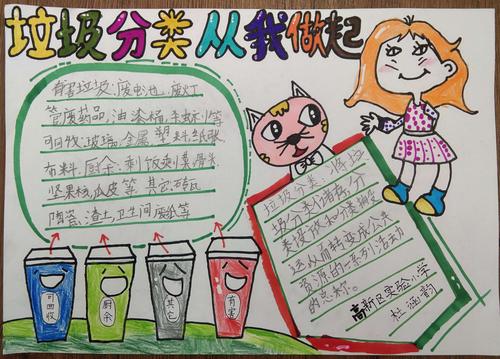 垃圾分类从我做起
有害垃圾、废电池、废灯
管废药品、油漆桶、杀虫剂等
可回收、玻璃、金属、塑料、纸张、
布料、厨余、剩饭剩菜骨头
坚果核、瓜皮等、其它砖瓦
陶瓷、渣土、卫生间废纸等
垃圾分类、将垃
圾分类储存、分
类投放和分类搬
运从而转变成公共
资源的一系列活动
的总称。
高新区实验小学
杜涵韵
可回收
厨余
其它
有害